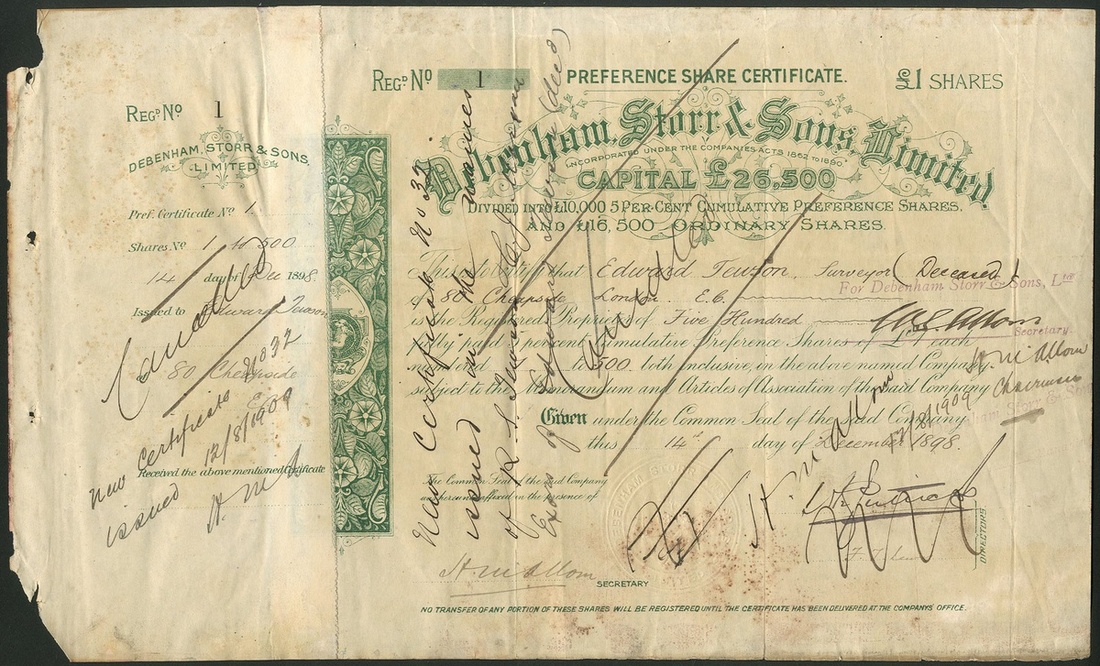 REGD. NO 1
DEBENHAM, STORR & SONS,
LIMITED.
Pref. Certificate No 1.
Shares, No 1 to 500.
14 day of Dec 1898.
Issued to Edward Tewson
of 80 Cheapside
E.C.
Received the above mentioned Certificate
Cancelled
New Certificate No 32
issued 12/8/1909
REGD. NO 1 PREFERENCE SHARE CERTIFICATE. £1 SHARES
Debenham, Storr & Sons, Limited
INCORPORATED UNDER THE COMPANIES ACTS 1862 TO 1890.
CAPITAL £26,500
DIVIDED INTO £10,000 5 PER CENT CUMULATIVE PREFERENCE SHARES,
AND £16,500 ORDINARY SHARES.
This is to certify that Edward Tewson, Surveyor (Deceased)
of 80 Cheapside London. E.C.
is the Registered Proprietor of Five Hundred
Fully paid 5 per cent Cumulative Preference Shares of £1 each
numbered 1 to 500 both inclusive, in the above named Company,
subject to the Memorandum and Articles of Association of the said Company
Given under the Common Seal of the said Company
this 14th day of December 1898.
The Common Seal of the said Company
was hereunto affixed in the presence of
H M Allom
SECRETARY
DIRECTORS
NO TRANSFER OF ANY PORTION OF THESE SHARES WILL BE REGISTERED UNTIL THE CERTIFICATE HAS BEEN DELIVERED AT THE COMPANY'S OFFICE.
New Certificate No 32
issued in the names
of
Exors of Edward Tewson (decd)
Cancelled
For Debenham Storr & Sons, Ltd
Secretary.
H. M Allom
Chairman
12/8/1909